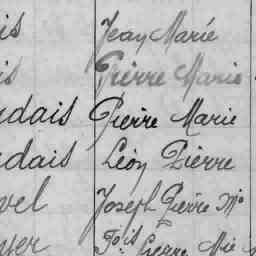 is Jean Marie
is Pierre Marie
dais Pierre Marie
dais Léon Pierre
vel Joseph Pierre Mie
yer Fois Pierre Mie